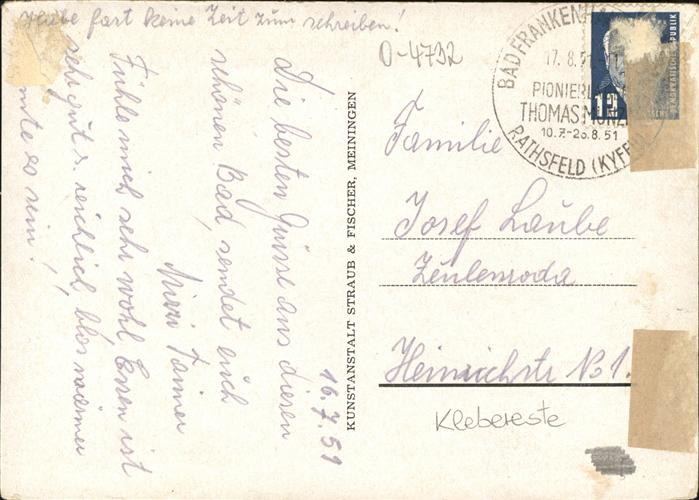 Habe fast keine Zeit zum schreiben!
16.7.51
Die besten Grüsse aus diesen
schönen Bad, sendet euch
Mizzi
Fühle mich sehr wohl Essen ist
sehr gut u. reichlich, blos wärmer
es sein!
KUNSTANSTALT STRAUB & FISCHER, MEININGEN
O-4732
BAD FRANKENHA
17.8.5
PIONIERL
THOMAS MÜNZ
10.7.-26.8.51
RATHSFELD (KYFF
12
DEMOKRATISCHE REPUBLIK
Familie
Josef Laube
Zeulenroda
Heinrichstr No 1.
Klebereste